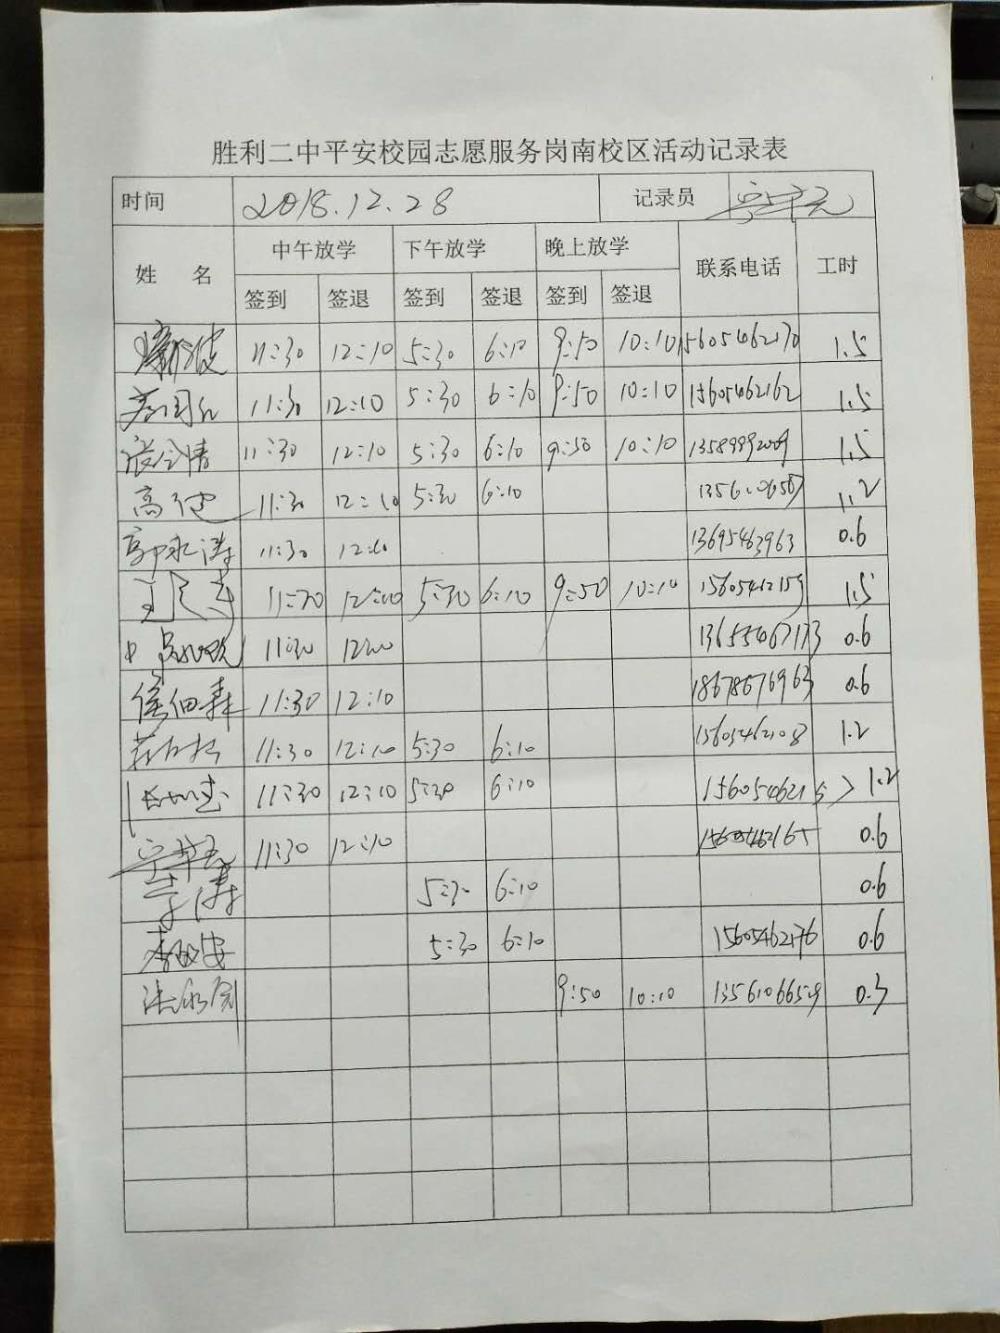 胜利二中平安校园志愿服务岗南校区活动记录表
时间 2018.12.28 记录员
姓 名 中午放学 下午放学 晚上放学 联系电话 工时
签到 签退 签到 签退 签到 签退
11:30 12:10 5:30 6:10 9:50 10:10 15605462170 1.5
11:30 12:10 5:30 6:10 9:50 10:10 15605462162 1.5
11:30 12:10 5:30 6:10 9:50 10:10 1.5
高 11:30 12:10 5:30 6:10 1.2
郭永涛 11:30 12:10 13695463963 0.6
王 11:30 12:10 5:30 6:10 9:50 10:10 15605462159 1.5
11:30 12:10 0.6
侯细森 11:30 12:10 18678676963 0.6
11:30 12:10 5:30 6:10 15605462108 1.2
11:30 12:10 5:30 6:10 1.2
11:30 12:10 15605462165 0.6
李涛 5:30 6:10 0.6
5:30 6:10 15605462176 0.6
9:50 10:10 13561066529 0.3